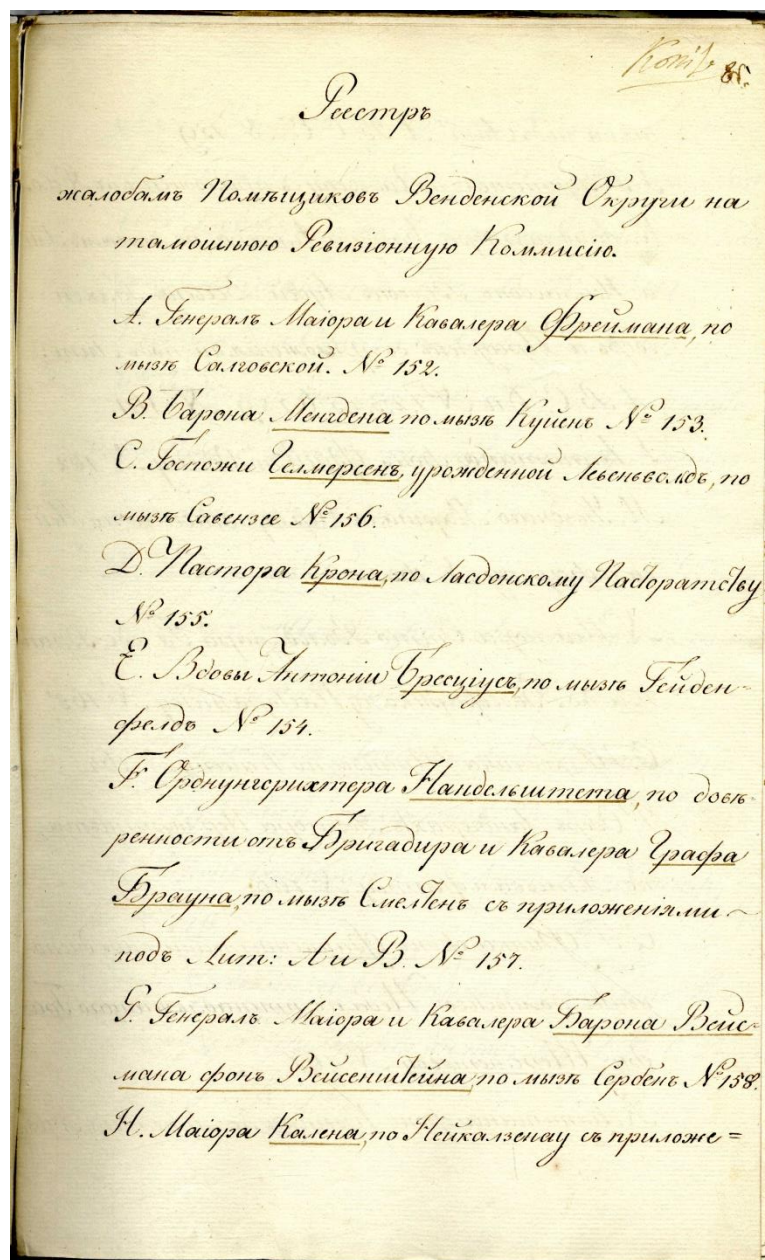 85.
Реестръ
жалобамъ Помѣщиковъ Венденской Округи на
тамошнюю Ревизіонную Коммисію.
A. Генералъ Маіора и Кавалера Фреймана, по
мызѣ Салговской. № 152.
B. Барона Менгдена по мызѣ Куйенъ № 153.
C. Госпожи Гелмерсенъ, урожденной Левенволдъ, по
мызѣ Савензее № 156.
D. Пастора Крона, по Ласдонскому Пасторатству
№ 155.
E. Вдовы Антоніи Бресціусъ, по мызѣ Гейден-
фелдъ № 154.
F. Орднунгсрихтера Нандельштета, по довѣ-
ренности отъ Бригадира и Кавалера Графа
Брауна, по мызѣ Смелтенъ съ приложеніями
подъ Лит: A и B. № 157.
G. Генералъ Маіора и Кавалера Барона Вейс-
мана фонъ Вейсенштейна, по мызѣ Сербенъ № 158.
H. Маіора Калена, по Нейкалзенау съ приложе=